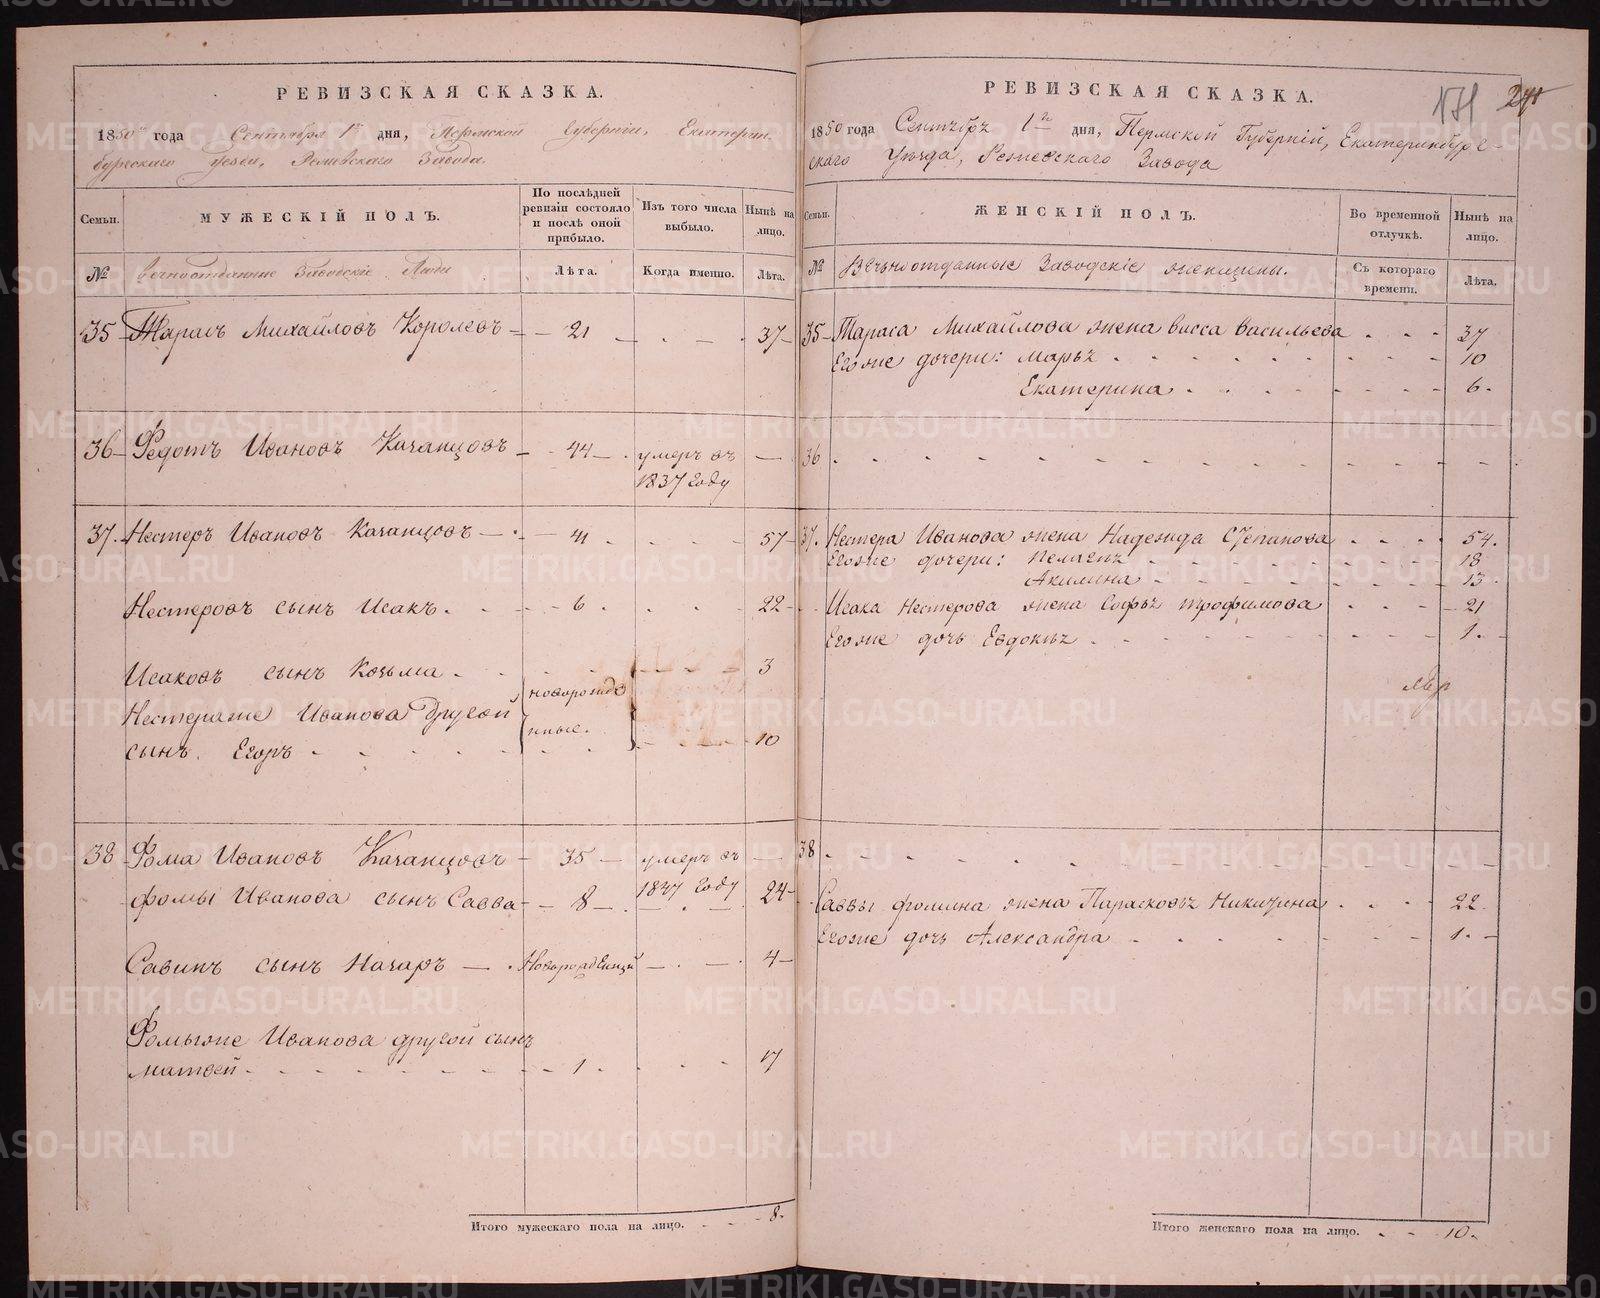 РЕВИЗСКАЯ СКАЗКА.
1850 года Сентября 1го дня, Пермской Губерніи, Екатерин-
бургскаго уезда, Режевскаго Завода.
Семьи. МУЖЕСКІЙ ПОЛЪ. По послѣдней ревизіи состояло и послѣ оной прибыло. Изъ того числа выбыло. Нынѣ на лицо.
№ вечноотданные Заводскіе Люди Лѣта. Когда именно. Лѣта.
35 Тарасъ Михайловъ Королевъ 21 37
36 Федотъ Ивановъ Качанцовъ 44 умеръ въ
1837 году
37. Нестеръ Ивановъ Качанцовъ 41 57
Нестеровъ сынъ Исакъ. 6 22
Исаковъ сынъ Козьма 3
новорожде
Нестераже Иванова другой
нные.
сынъ. Егоръ 10
38 Фома Ивановъ Качанцовъ 35 умеръ въ
1847 году
фомы Иванова сынъ Савва 8 24
Савинъ сынъ Назаръ Новорожденный 4
Фомыже Иванова другой сынъ
матвей 1 17
Итого мужескаго пола на лицо. 8.
171 271
РЕВИЗСКАЯ СКАЗКА.
1850 года Сентебрь 1го дня, Пермской Губерній, Екатеринбург-
скаго Уезда, Режевскаго Завода
Семьи. ЖЕНСКІЙ ПОЛЪ. Во временной отлучкѣ. Нынѣ на лицо.
№ Вечьноотданные Заводскіе женщины. Съ котораго времени. Лѣта.
35 Тараса Михайлова жена васса васильева 37
Егоже дочери: марья 10
Екатерина 6.
36
37. Нестера Иванова жена Надежда Степанова 54.
Егоже дочери: Пелагея 18
Акилина 13
Исака Нестерова жена Софья трофимова 21
Егоже дочь Евдокья 1.
38
Саввы фомина жена Парасковья Никитина 22.
Егоже дочь Александра 1.
Итого женскаго пола на лицо. 10.
METRIKI.GASO-URAL.RU